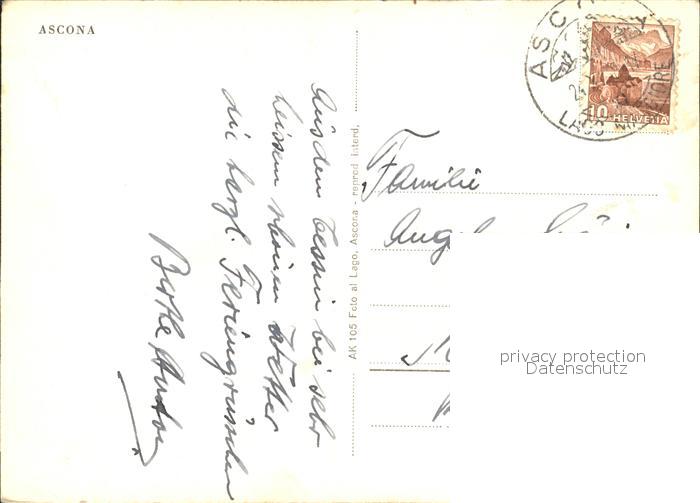 ASCONA
Aus dem Tessin bei sehr
heissem schönen Wetter
die herzl. Feriengrüsse
AK 105 Foto al Lago, Ascona - reprod. interd.
Familie
ASCONA
LAGO MAGGIORE
10 HELVETIA
privacy protection
Datenschutz